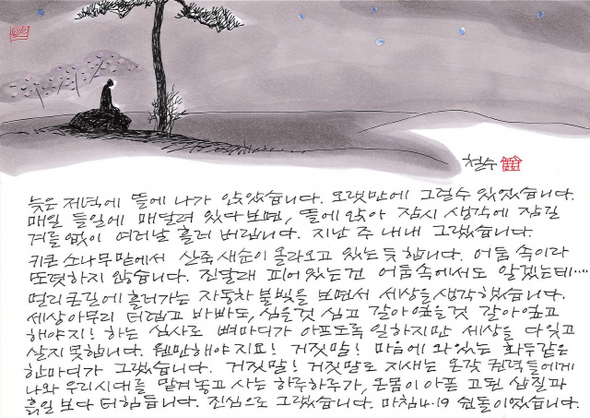 철수
늦은 저녁에 뜰에 나가 앉았습니다. 오랫만에 그럴수 있었습니다.
매일 들일에 매달려 있다보면, 뜰에 앉아 잠시 생각에 잠길
겨를 없이 여러날 흘러 버립니다. 지난 주 내내 그랬습니다.
키큰 소나무 밑에서 산죽 새순이 올라오고 있는듯 합니다. 어둠 속이라
또렷하지 않습니다. 진달래 피어 있는건 어둠속에서도 알겠는데....
멀리 큰길에 흘러가는 자동차 불빛을 보면서 세상을 생각했습니다.
세상 아무리 더럽고 바빠도, 심을것 심고 갈아엎을것 갈아엎고
해야지! 하는 심사로 뼈마디가 아프도록 일하지만 세상을 다 잊고
살지 못합니다. 웬만해야지요! 거짓말! 마음에 와 있는 화두같은
한마디가 그랬습니다. 거짓말! 거짓말로 지새는 온갖 권력들에게
나와 우리시대를 맡겨놓고 사는 하루하루가, 온몸이 아픈 고된 삽질과
흙일 보다 더 힘듭니다. 진심으로 그랬습니다. 마침 4.19 쉰돌이었습니다.